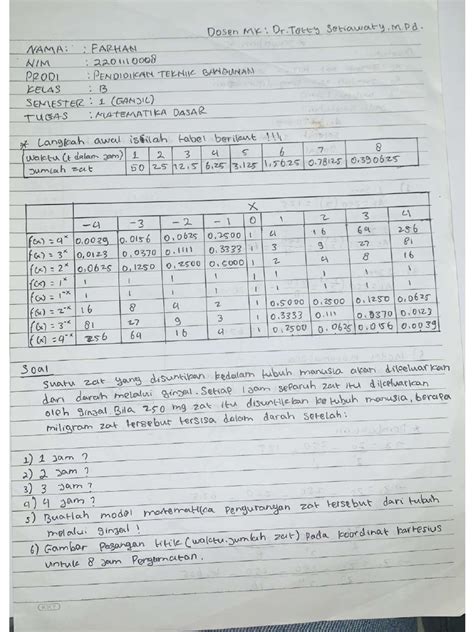 Dosen MK : Dr. Tetty Setiawaty, M.Pd.
NAMA : FARHAN
NIM : 2201110008
PRODI : PENDIDIKAN TEKNIK BANGUNAN
KELAS : B
SEMESTER : 1 (GANJIL)
TUGAS : MATEMATIKA DASAR
* Langkah awal isilah tabel berikut !!!
Waktu (t dalam jam) 1 2 3 4 5 6 7 8
Jumlah zat 50 25 12.5 6.25 3.125 1.5625 0.78125 0.390625
X
-4 -3 -2 -1 0 1 2 3 4
f(x) = 4ˣ 0.0039 0.0156 0.0625 0.2500 1 4 16 64 256
f(x) = 3ˣ 0,0123 0.0370 0.1111 0.3333 1 3 9 27 81
f(x) = 2ˣ 0.0625 0.1250 0.2500 0.5000 1 2 4 8 16
f(x) = 1ˣ 1 1 1 1 1 1 1 1 1
f(x) = 1⁻ˣ 1 1 1 1 1 1 1 1 1
f(x) = 2⁻ˣ 16 8 4 2 1 0.5000 0.2500 0.1250 0.0625
f(x) = 3⁻ˣ 81 27 9 3 1 0.3333 0.111 0.0370 0.0123
f(x) = 4⁻ˣ 256 64 16 4 1 0.2500 0.0625 0.0156 0.0039
Soal
Suatu zat yang disuntikan kedalam tubuh manusia akan dikeluarkan
dari darah melalui ginjal. Setiap 1 jam separuh zat itu dikeluarkan
oleh ginjal. Bila 250 mg zat itu disuntikkan ke tubuh manusia, berapa
miligram zat tersebut tersisa dalam darah setelah :
1) 1 jam ?
2) 2 jam ?
3) 3 jam ?
4) 4 jam ?
5) Buatlah model matematika pengurangan zat tersebut dari tubuh
melalui ginjal !
6) Gambar Pasangan titik (waktu, jumlah zat) pada koordinat kartesius
untuk 8 jam Pengamatan.